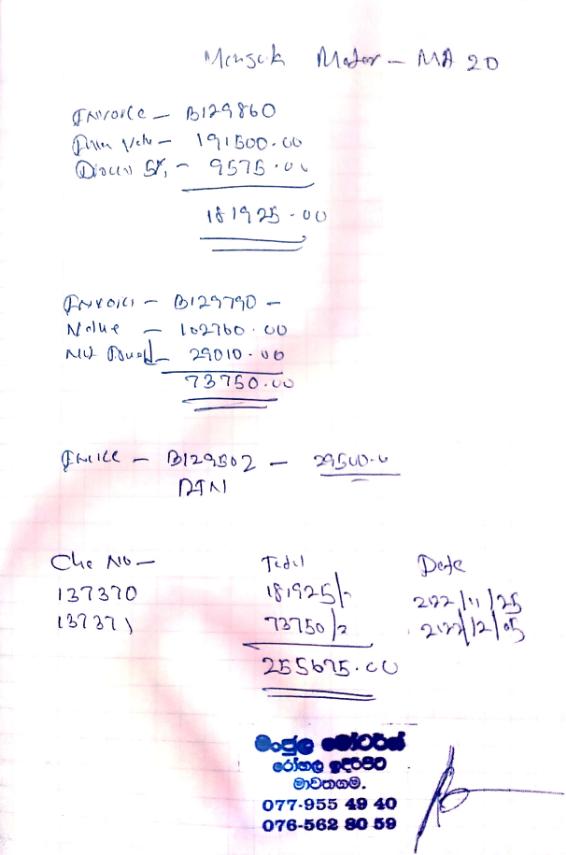 Motor - MA 20
Invoice - B129860
191500.00
5%, - 9575.00
181925-00
Invoice - B129790 -
Value - 102760.00
29010.00
73750.00
- B129502 - 29500.0
Che No -
Total
Date
137370
181925/-
2022/11/25
137371
73750/-
2022/12/05
255675.00
මංජුල මෝටර්ස්
රෝහල ඉදිරිපිට
මාවතගම.
077-955 49 40
076-562 80 59